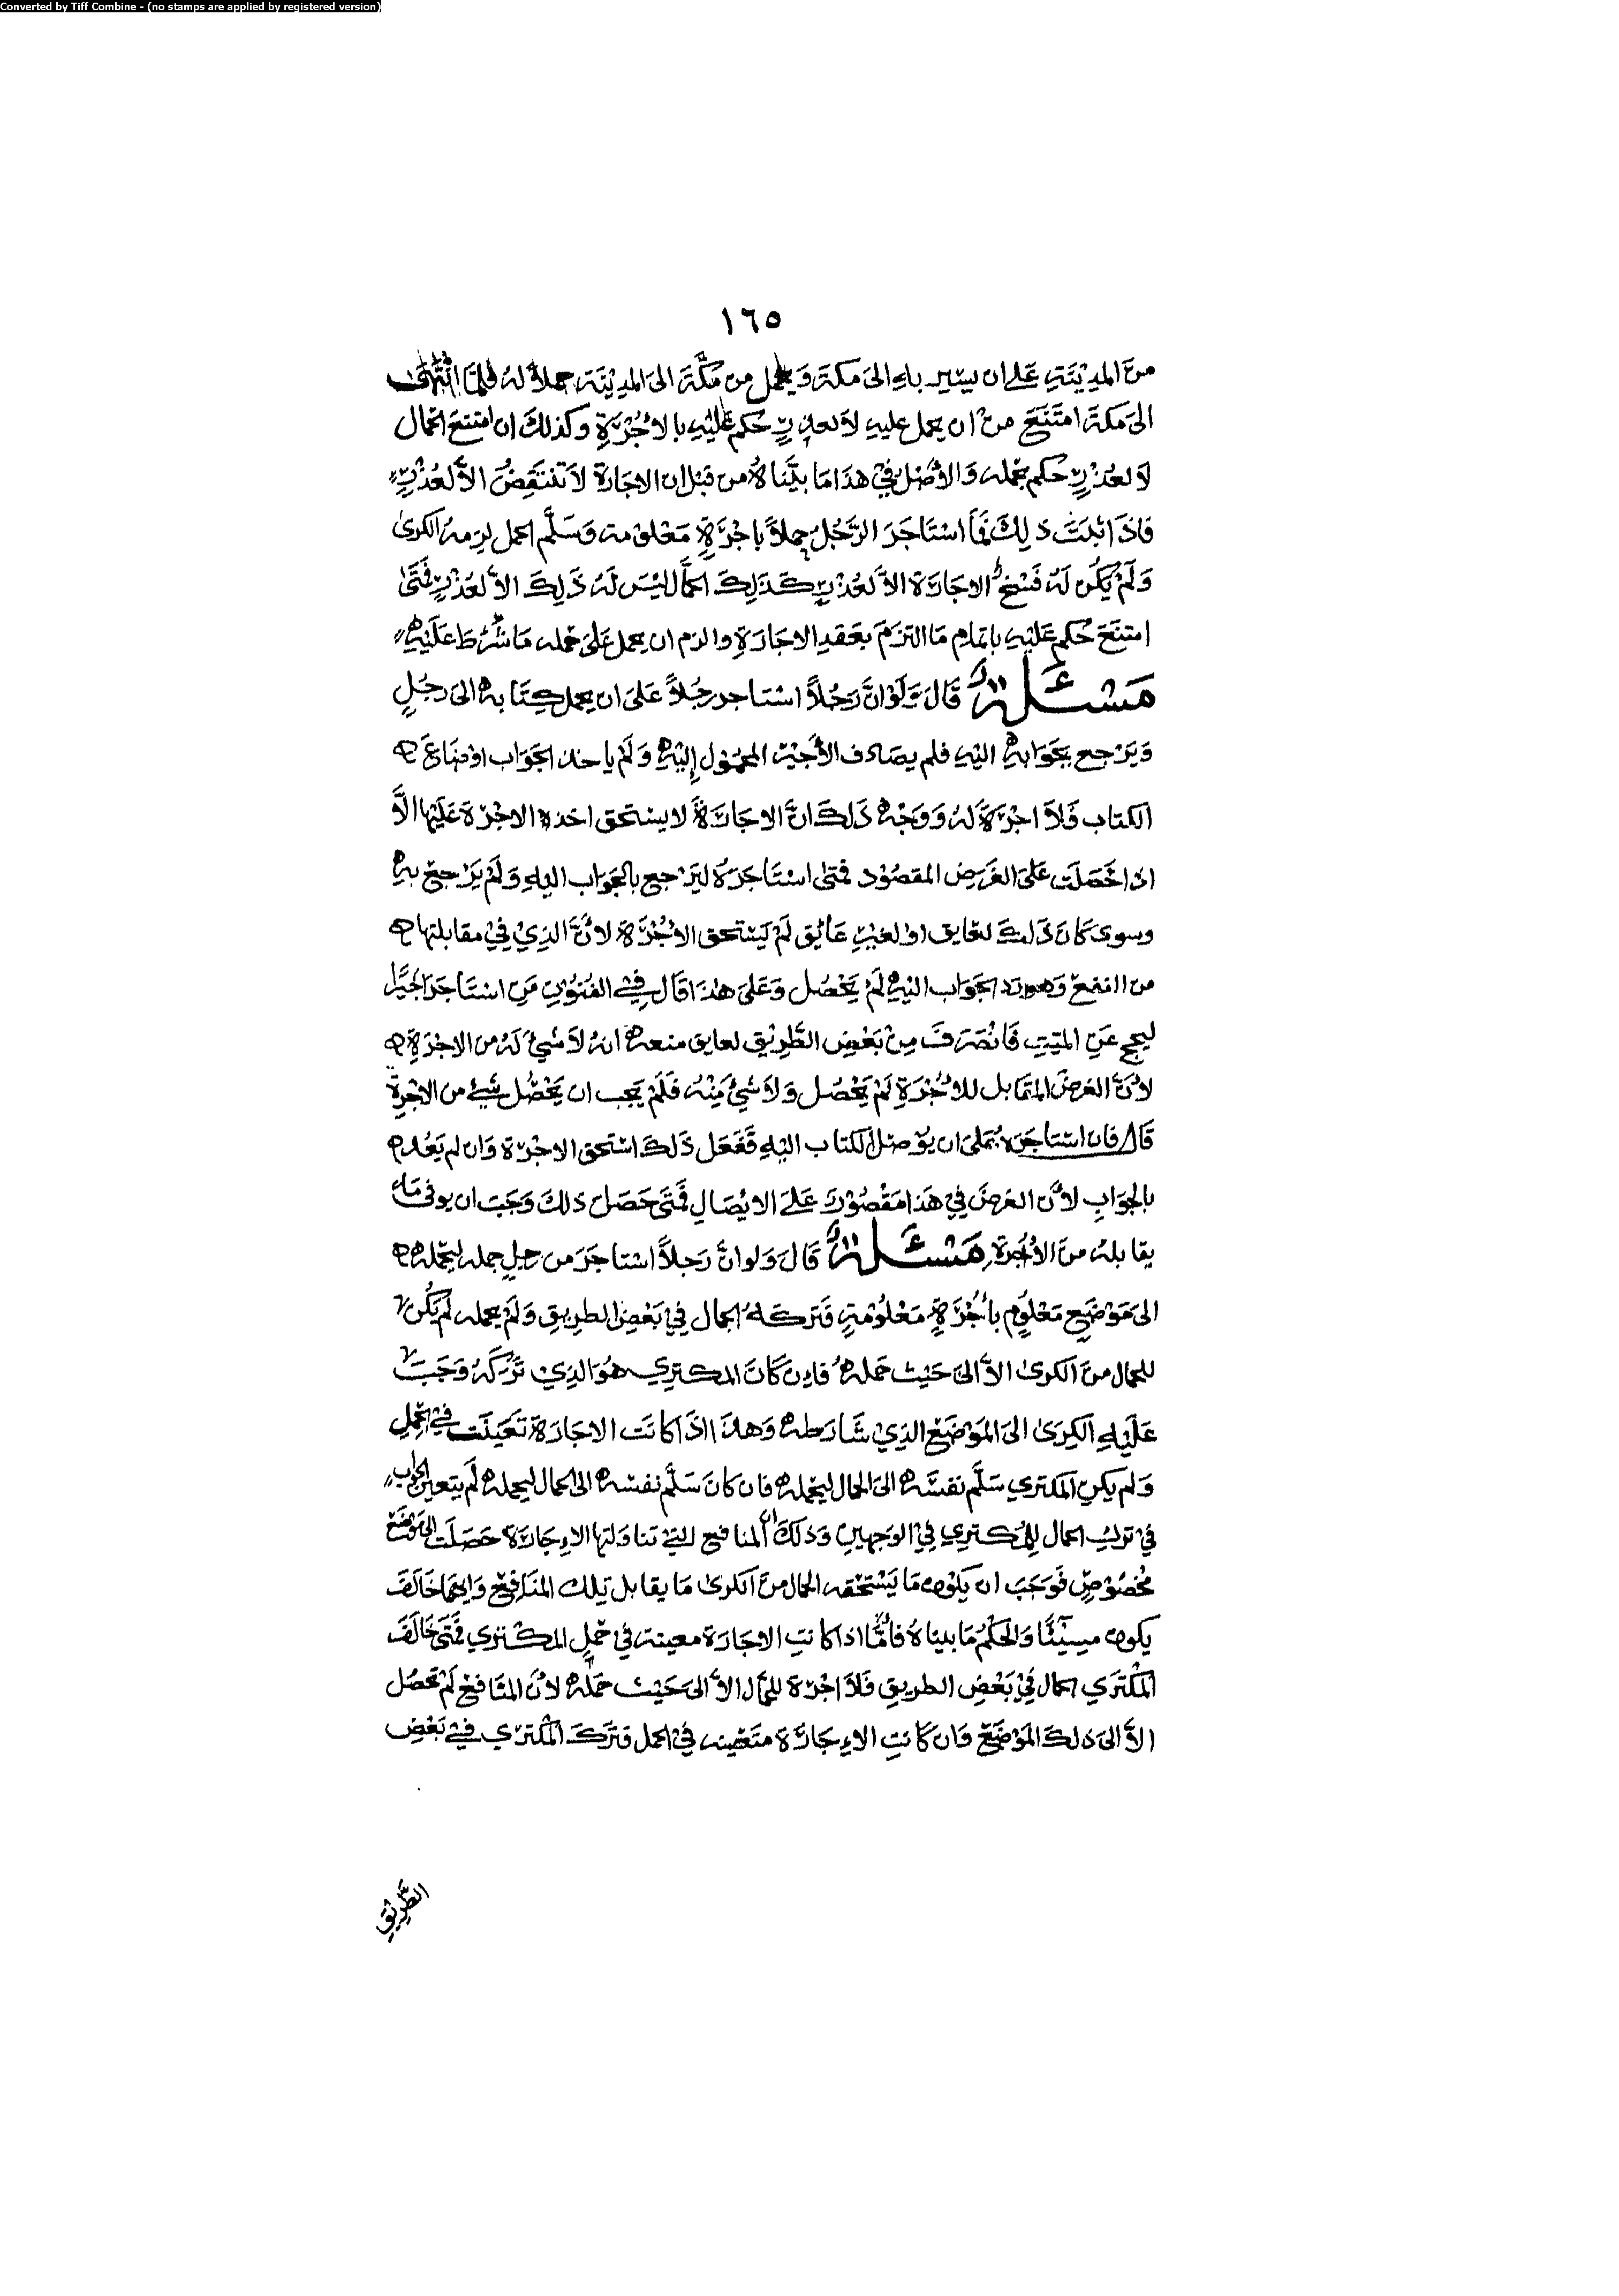 Converted by Tiff Combine - (no stamps are applied by registered version)
١٦٥
من المدينة على ان يسير بإبله الى مكة ويحمل من مكة الى المدينة حملاً له فلما انتهى
الى مكة امتنع من ان يحمل عليه لا لعذر حكم عليه بالاجرة وكذلك ان امتنع الجمال
لا لعذر حكم بحمله والاصل في هذا ما بيناه من قبل ان الاجارة لا تنتقض الا لعذر
فاذا ثبت ذلك فما استاجر الرجل جملاً باجرة معلومة وسلم الحمل لزمه الكرى
ولم يكن له فسخ الاجارة الا لعذر كذلك الجمال ليس له ذلك الا لعذر فمتى
امتنع حكم عليه باتمام ما التزم بعقد الاجارة والزم ان يحمل على جمله ما شرط عليه
مسئلة قال ولو ان رجلاً استاجر رجلاً على ان يحمل كتابه الى رجل
ويرجع بجوابه اليه فلم يصادف الاجير المحمول إليه ولم ياخذ الجواب او ضاع
الكتاب فلا اجرة له ووجه ذلك ان الاجارة لا يستحق اخذ الاجرة عليها الا
اذا حصلت على الغرض المقصود فمتى استاجره ليرجع بالجواب اليه ولم يرجع به
وسوى كان ذلك لعايق او لغير عائق لم يستحق الاجرة لان الذي في مقابلتها
من النفع وهو رد الجواب اليه لم يحصل وعلى هذا قال في الفنون من استاجر اجيرا
ليحج عن الميت فانصرف من بعض الطريق لعايق منعه انه لا شيء له من الاجرة
لان الغرض المقابل للاجرة لم يحصل ولا شيء منه فلم يجب ان يحصل شيء من الاجرة
قال فان استاجره على ان يوصل الكتاب اليه ففعل ذلك استحق الاجرة وان لم يعد
بالجواب لان الغرض في هذا مقصور على الايصال فمتى حصل ذلك وجب ان يوفى ما
يقابله من الاجرة مسئلة قال ولو ان رجلاً استاجر من رجل جمله ليحمله
الى موضع معلوم باجرة معلومة فتركه الجمال في بعض الطريق ولم يحمله لم يكن
للجمال من الكرى الا الى حيث حمله فإن كان المكتري هو الذي تركه وجب
عليه الكرى الى الموضع الذي شارطه وهذا اذا كانت الاجارة تعينت في الحمل
ولم يكن المكتري سلم نفسه الى الجمال ليحمله فان كان سلم نفسه الى الجمال ليحمله لم يتعين الجواب
في ترك الجمال للمكتري في الوجهين وذلك ان المنافع التي تناولتها الإجارة حصلت الى موضع
مخصوص فوجب ان يكون ما يستحقه الجمال من الكرى ما يقابل تلك المنافع وايهما خالف
يكون مسيئًا والحكم ما بيناه فاما اذا كانت الاجارة معينة في حمل المكتري فمتى خالف
المكتري الجمال في بعض الطريق فلا اجرة للجمال الا الى حيث حمله لان المنافع لم تحصل
الا الى ذلك الموضع وان كانت الإجارة متعينه في الحمل فترك المكتري في بعض
الطريق